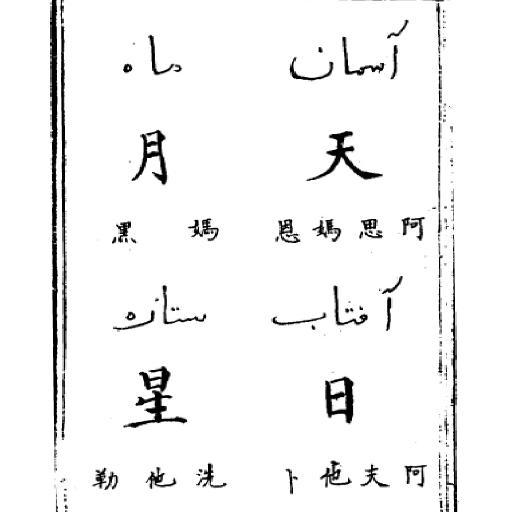 آسمان ماه
天 月
阿思媽恩 媽黑
آفتاب ستاره
日 星
阿夫他卜 洗他勒